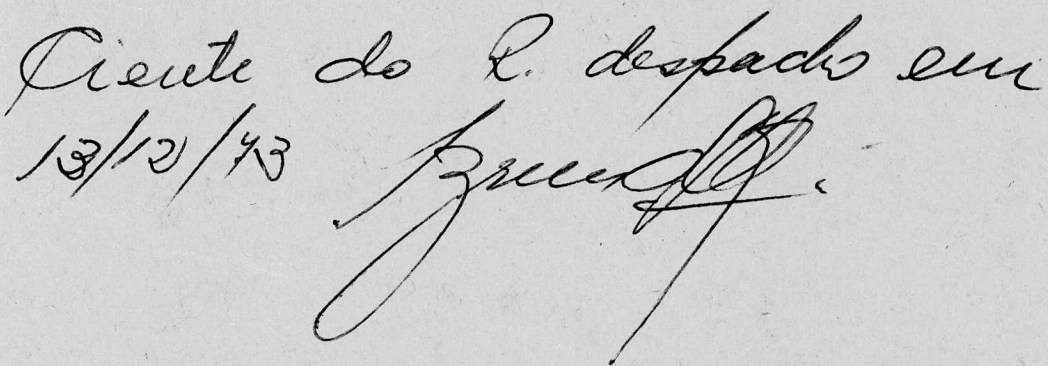 Ciente do R. despacho em
13/12/73